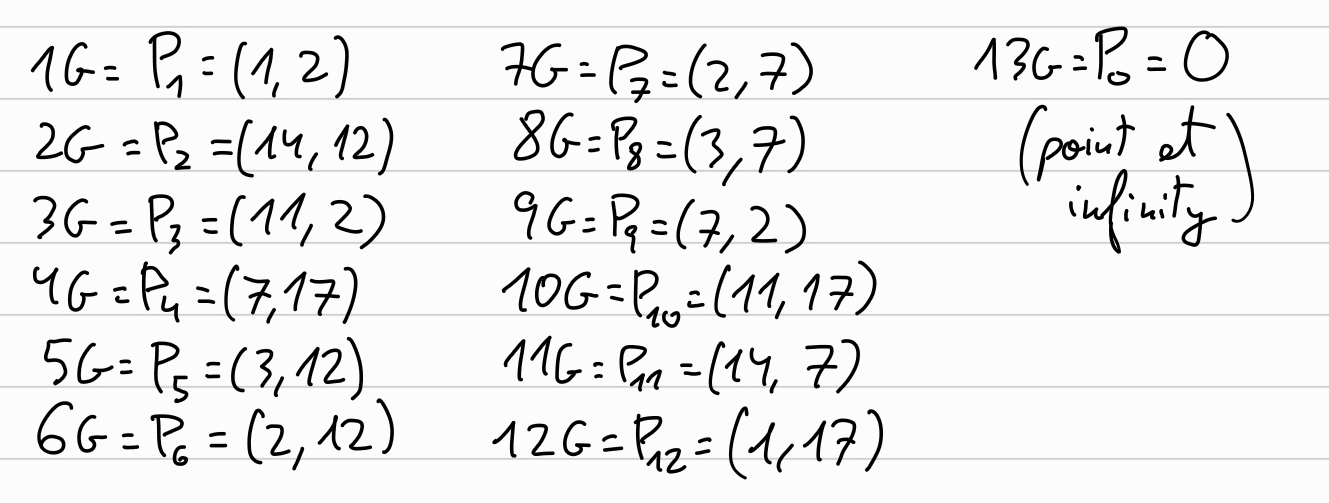 1G = P₁ = (1, 2)
2G = P₂ = (14, 12)
3G = P₃ = (11, 2)
4G = P₄ = (7, 17)
5G = P₅ = (3, 12)
6G = P₆ = (2, 12)
7G = P₇ = (2, 7)
8G = P₈ = (3, 7)
9G = P₉ = (7, 2)
10G = P₁₀ = (11, 17)
11G = P₁₁ = (14, 7)
12G = P₁₂ = (1, 17)
13G = P₀ = O
(point at
infinity)